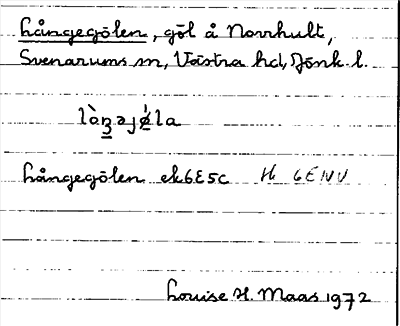 Långegölen, göl å Norrhult,
Svenarums sn, Västra hd, Jönk. l.
Långegölen ek6E5c H 6E NV
Louise H. Maas 1972